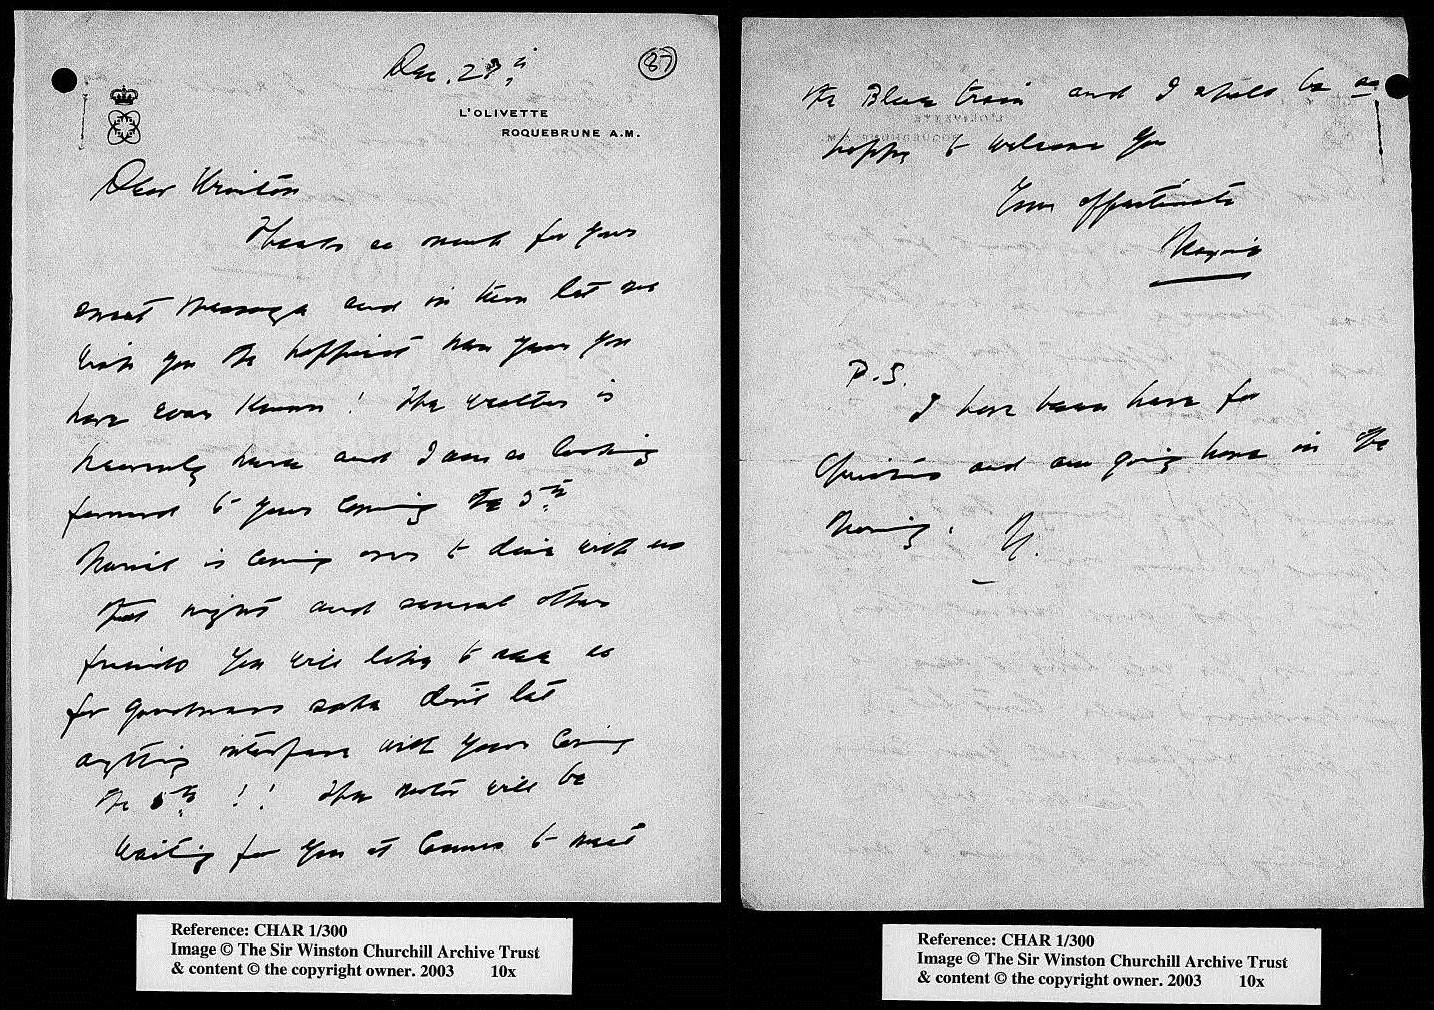 Dec. 28th
87
L'OLIVETTE
ROQUEBRUNE A.M.
Dear Winston
Thanks so much for your
sweet message and in turn let me
wish you the happiest new year you
have ever known! The weather is
heavenly here and I am so looking
forward to your coming the 5th
is coming over to dine with us
that night and several other
friends you will like to see so
for goodness sake don't let
anything interfere with your coming
the 5th!! The motor will be
waiting for you at Cannes to meet
the Blue train and I shall be so
happy to welcome you
Your affectionate
Maxine
P.S.
I have been here for
Christmas and am going home in the
morning. M.
Reference: CHAR 1/300
Image © The Sir Winston Churchill Archive Trust
& content © the copyright owner. 2003 10x
Reference: CHAR 1/300
Image © The Sir Winston Churchill Archive Trust
& content © the copyright owner. 2003 10x